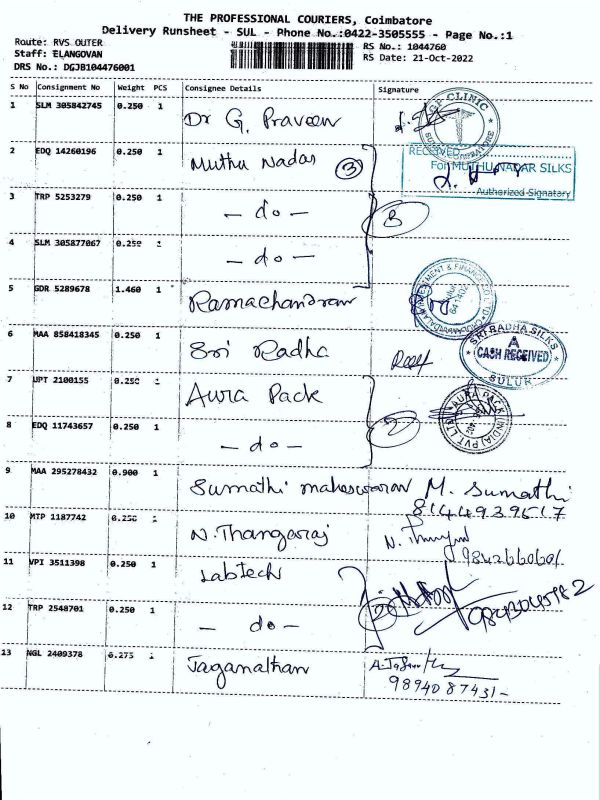 THE PROFESSIONAL COURIERS, Coimbatore
Delivery Runsheet - SUL - Phone No.:0422-3505555 - Page No.:1
Route: RVS OUTER
RS No.: 1044760
Staff: ELANGOVAN
RS Date: 21-Oct-2022
DRS No.: DGJB104476001
S No Consignment No Weight PCS Consignee Details Signature
1 SLM 305842745 0.250 1 Dr G. Praveen
CLINIC
2 EDQ 14260196 0.250 1 Muthu Nadar 3
RECEIVED
For MUTHU NADAR SILKS
Authorized Signatory
3 TRP 5253279 0.250 1 - do - 3
4 SLM 305877067 0.250 1 - do -
5 GDR 5289678 1.460 1 Ramachandran
6 MAA 858418345 0.250 1 Sri Radha
SRI RADHA SILKS
CASH RECEIVED
SULUR
7 UPT 2100155 0.250 1 Aura Pack
8 EDQ 11743657 0.250 1 - do - 2
AURA PACK (INDIA) PVT LTD
9 MAA 295278432 0.900 1 Sumathi maheswaran M. Sumathi
8144939517
10 MTP 1187742 0.250 1 N. Thangaraj
11 VPI 3511398 0.250 1 Labtech
12 TRP 2548701 0.250 1 - do - 2
13 NGL 2409378 0.275 1 Jaganathan
9894087431-